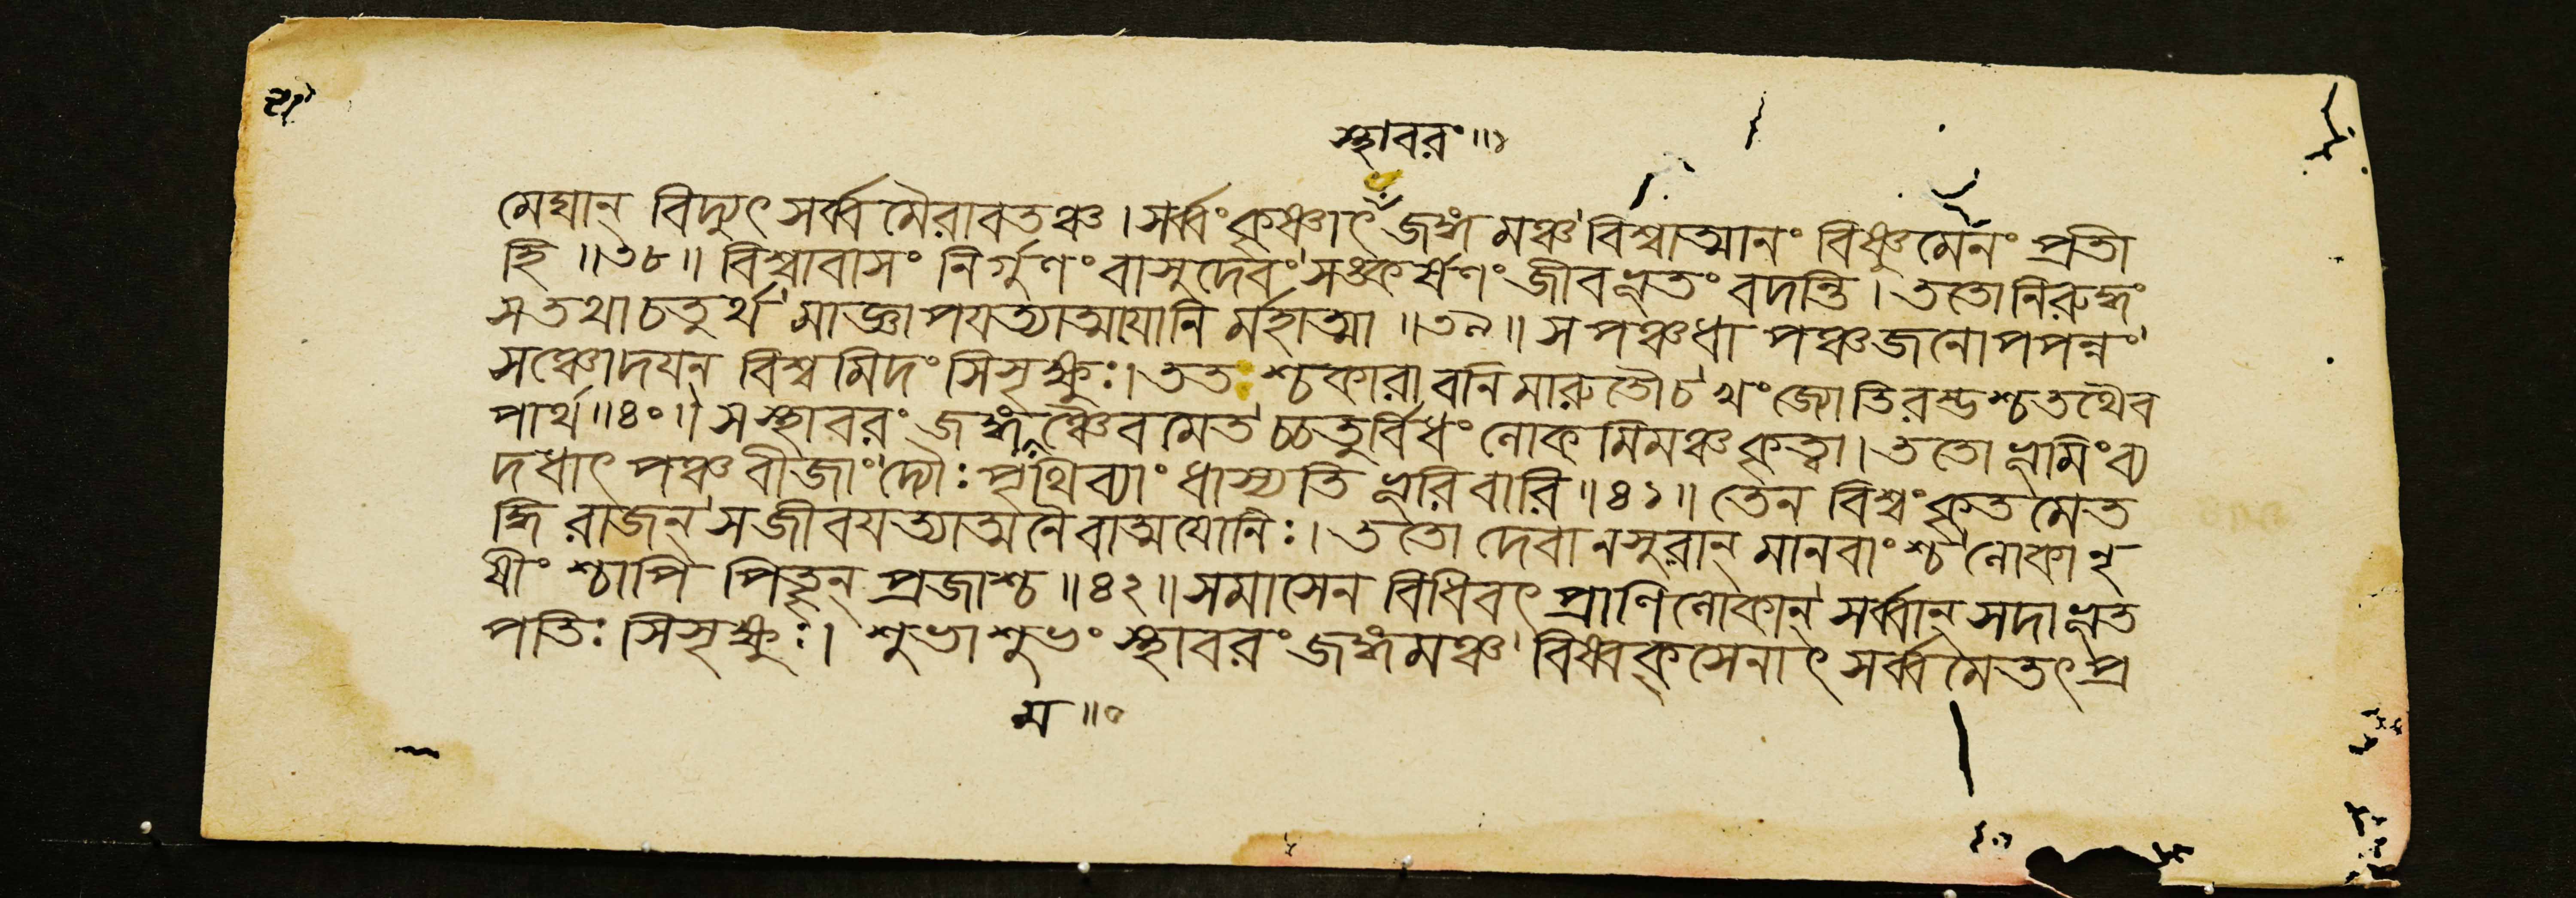 স্থাবরং॥১
মেঘান্ বিদ্যুৎ সর্ব্বমৈরাবতঞ্চ।সর্ব্বংকৃষ্ণাৎ জঙ্গমঞ্চ বিশ্বাত্মানং বিষ্ণুমেনং প্রতী
হি॥৩৮॥ বিশ্বাবাসং নির্গুণং বাসুদেবং সঙ্কর্ষণং জীবভূতং বদন্তি। ততোনিরুদ্ধং
সতথাচতুর্থ মাজ্ঞাপযত্যাত্মাযোনি র্মহাত্মা॥৩৯॥ স পঞ্চধা পঞ্চজনোপপন্নং
সঞ্চোদযন বিশ্বমিদংসিসৃক্ষুঃ।ততঃশ্চকারাবনিমারুতৌচ খংজ্যোতিরম্ভশ্চতথৈব
পার্থ॥৪০॥ সস্থাবরং জঙ্গমঞ্চৈবমেত চ্চতুর্বিধং লোকমিমঞ্চকৃত্বা।ততোভূমিংব্য
দধাৎ পঞ্চবীজাং দ্যৌঃপৃথিব্যাং ধাস্যতি ভূরিবারি॥৪১॥ তেন বিশ্বংকৃতমেত
দ্ধি রাজন্ সজীবযত্যাত্মনৈবাত্মযোনিঃ। ততো দেবানসুরান্ মানবাংশ্চ লোকানৃ
ষীংশ্চাপি পিতৄন্ প্রজাশ্চ॥৪২॥সমাসেন বিধিবৎ প্রাণিলোকান্ সর্ব্বান্ সদাভূত
পতিঃসিসৃক্ষুঃ। শুভাশুভং স্থাবরং জঙ্গমঞ্চ বিষ্বক্সেনাৎ সর্ব্বমেতৎপ্র
ম॥০